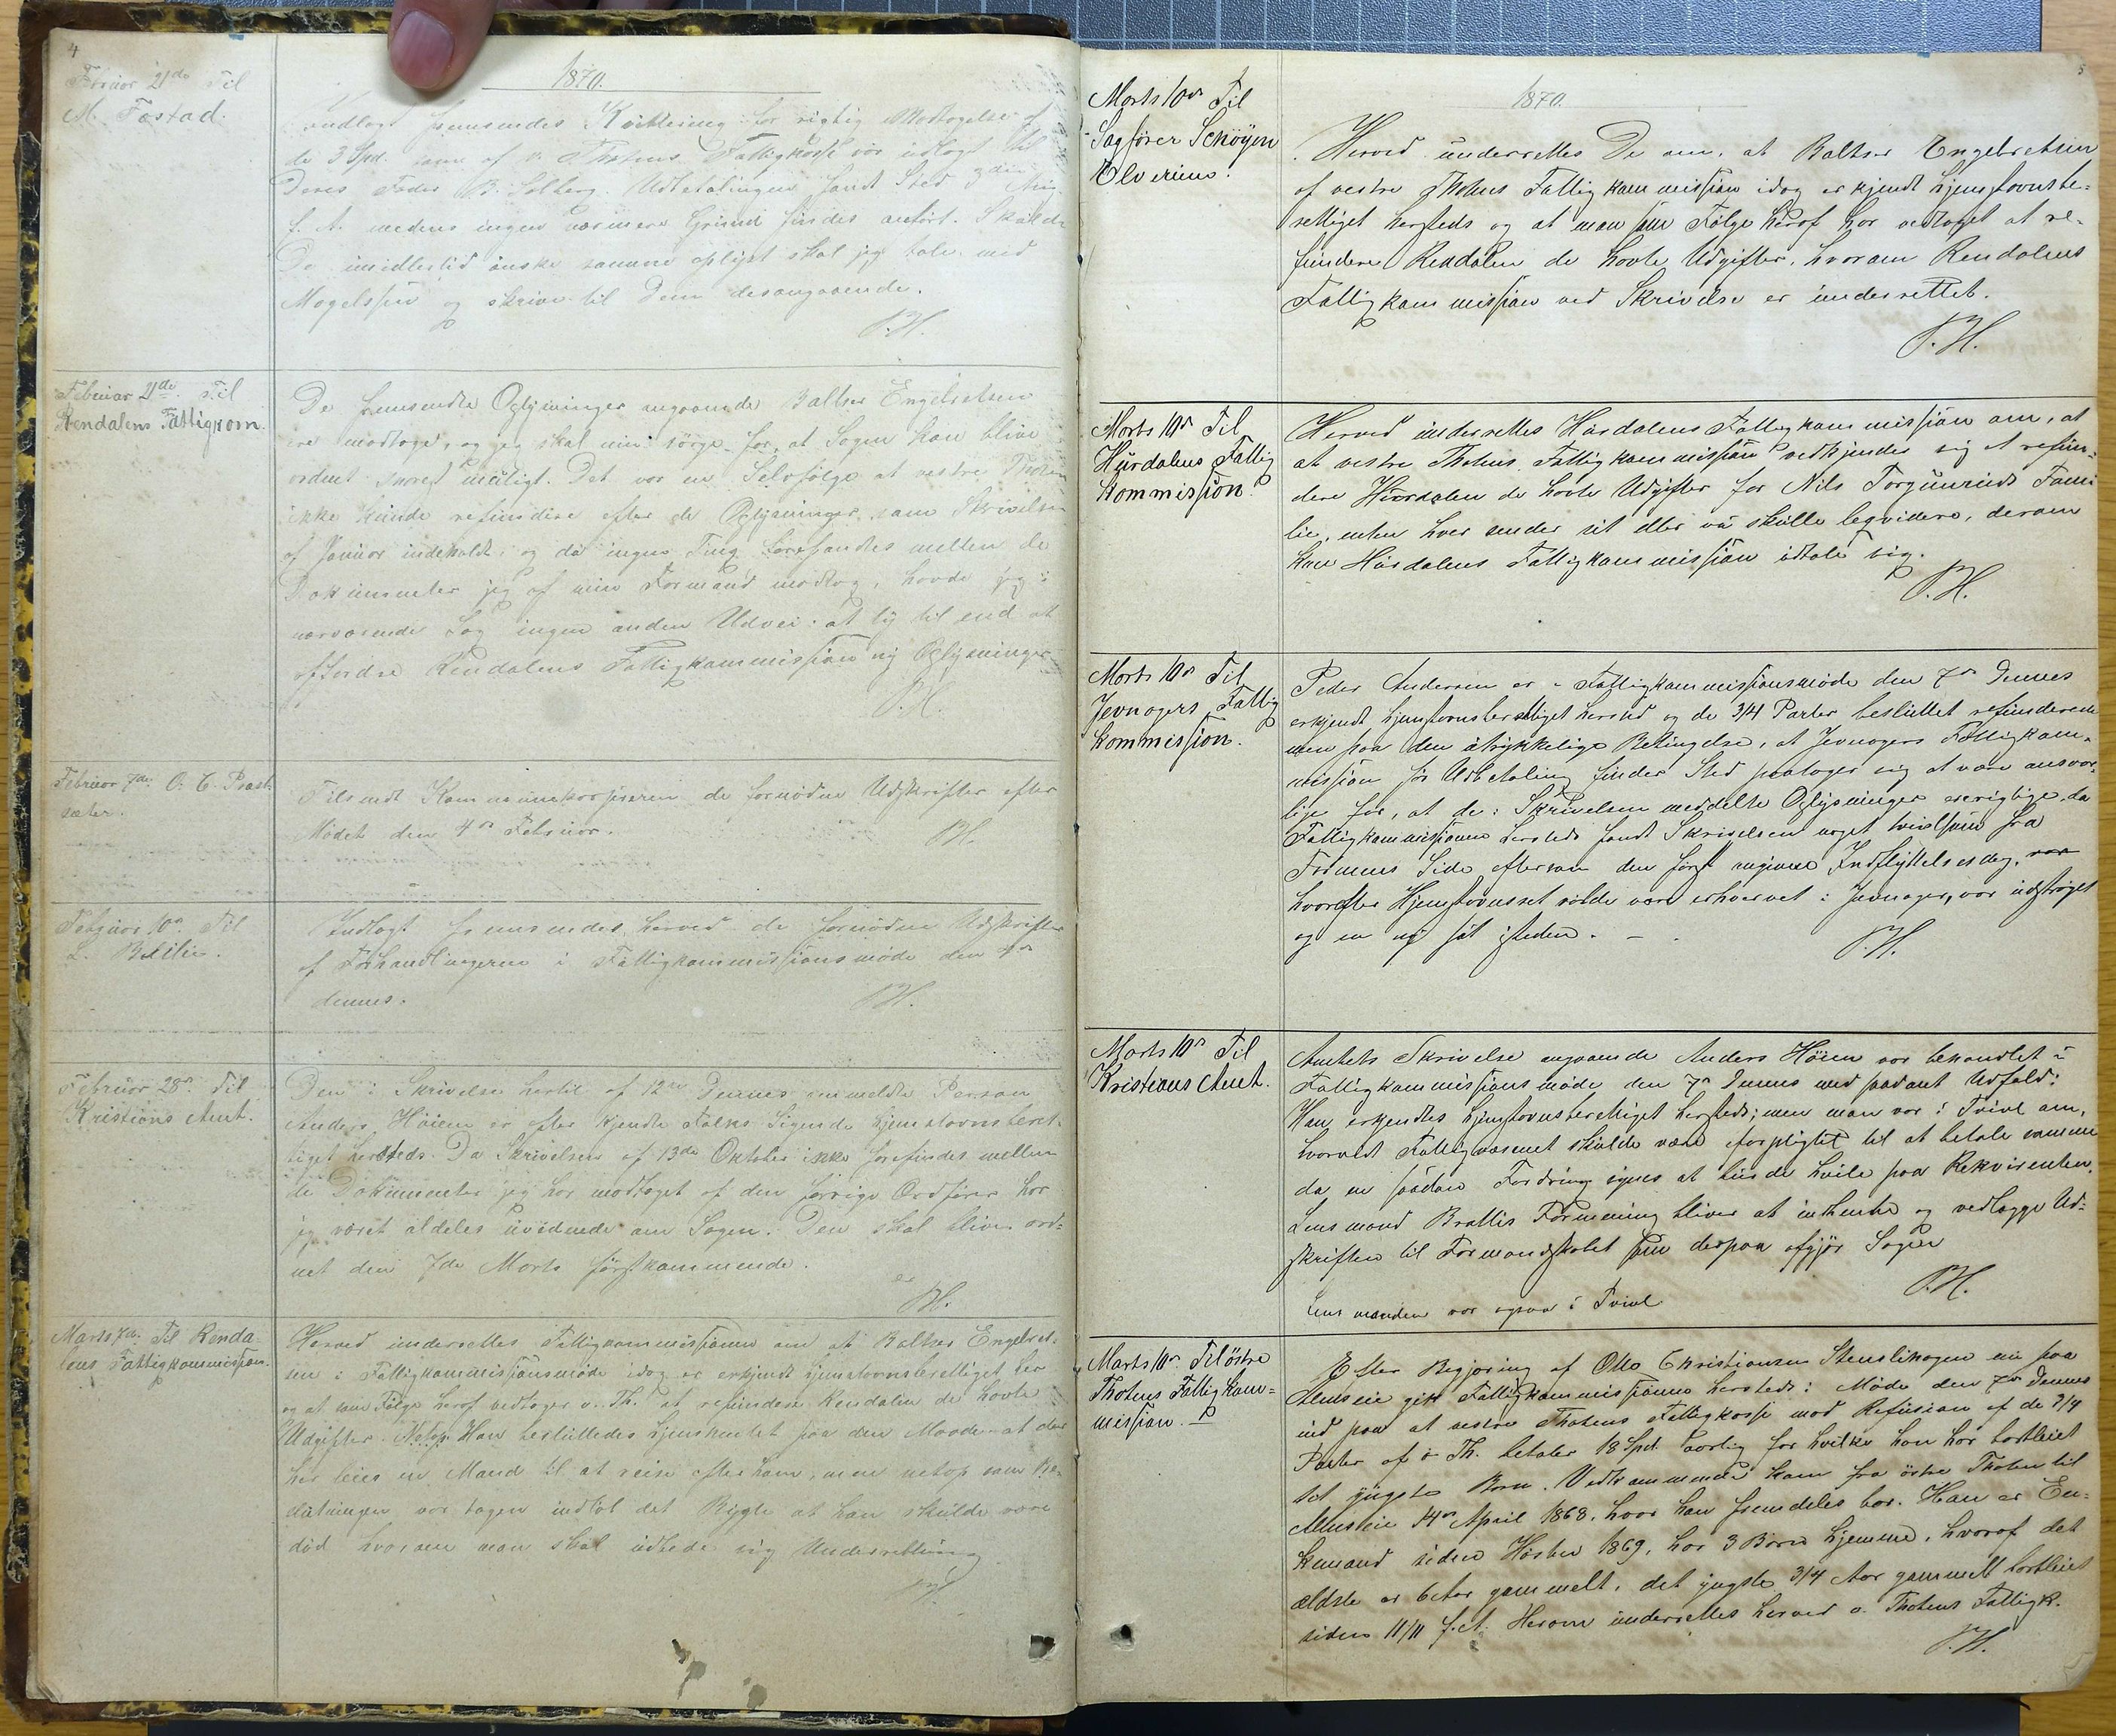 4
1870.
Februar 21de Til
M. Fostad.
Indlagt fremsendes Kvittering for rigtig Modtagelse af
de 3 Spd. som af v. Thotens Fattigkasse var udlagt til
Deres Fader B. Solberg. Udbetalingen fandt Sted 3die Aug.
f. A. medens ingen nærmere Grund findes anført. Skulde
De imidlertid ønske samme oplyst skal jeg tale med
Mogelssen og skrive til Dem desangaaende.
P.H.
Februar 21de. Til
Rendalens Fattigkom.
De fremsendte Oplysninger angaaende Baltser Engebretsen
ere modtagne, og jeg skal nu sørge for at Sagen kan blive
ordnet snarest muligt. Det var en Selvfølge at vestre Thoten
ikke kunde refundere efter de Oplysninger, som Skrivelsen
af Januar indeholdt, og da ingen Ting forefandtes mellem de
Dokumenter jeg af min Formand modtog, havde jeg i
nærværende Sag ingen anden Udvei at ty til end at
affordre Rendalens Fattigkommission ny Oplysninger
P.H.
Februar 7de O. C. Præst-
sæter.
Tilsendt Kommunekasereren de fornødne Udskrifter efter
Mødet den 4de Februar.
PH.
Februar 10de Til
L. Blilie.
Indlagt fremsendes herved de fornødne Udskrifter
af Forhandlingerne i Fattigkommissionsmøde den 4de
dennes.
PH.
Februar 28de Til
Kristians Amt.
Den i Skrivelse hertil af 12te Dennes ommeldte Person
Anders Høien er efter kjendte Folks Sigende hjemstavnsberet-
tiget hersteds. Da Skrivelsen af 13de Oktober ikke forefindes mellem
de Dokumenter jeg har modtaget af den forrige Ordfører har
jeg været aldeles uvidende om Sagen. Den skal blive ord-
net den 7de Marts førstkommende.
PH.
Marts 7de Til Renda-
lens Fattigkommission.
Herved underrettes Fattigkommissionen om at Baltser Engebret-
sen i Fattigkommissionsmøde idag er erkjendt hjemstavnsberettiget her
og at som Følge heraf vedtager v. Th. at refundere Rendalen de havte
Udgifter. Netop Han besluttedes hjemhentet paa den Maade at der
her leies en Mand til at reise efter ham, men netop som Be-
slutningen var tagen indløb det Rygte at han skulde være
død hvorom man skal udbede sig Underretning
PH.
5
1870.
Marts 10de Til
Sagfører Schøyen
Elverum.
Herved underrettes De om, at Baltser Engebretsen
af vestre Thotens Fattigkommission idag er kjendt hjemstavnsbe-
rettiget hersteds og at man som Følge heraf har vedtaget at re-
fundere Rendalen de havte Udgifter, hvorom Rendalens
Fattigkommission ved Skrivelse er underrettet.
P.H.
Marts 10de Til
Hurdalens Fattig
Kommission.
Herved underrettes Hurdalens Fattigkommission om, at
at vestre Thotens Fattigkommission vedkjender sig at refun-
dere Hurdalen de havte Udgifter for Nils Torgunruds Fami
lie, enten hver sender sit eller vi skulle leqvidere, derom
kan Hurdalens Fattigkommission udtale sig.
P.H.
Marts 10de Til
Jevnagers Fattig
Kommission.
Peder Andersen er i Fattigkommissionsmøde den 7de Dennes
erkjendt hjemstavnsberettiget hersted og de 3/4 Parter besluttet refunderede
men paa den utrykkelige Betingelse, at Jevnagers Fattigkom-
mission før Udbetaling finder Sted paatager sig at være ansvar-
lige for, at de i Skrivelsen meddelte Oplysninger ere rigtige, da
Fattigkommissionen hersteds fandt Skrivelsen noget tvivlsom fra
Formens Side eftersom den først angivne Indflyttelsesdag, var
hvorefter Hjemstavnsret vilde være erhvervet i Jevnager, var udstrøget
og en ny sat isteden. —
P.H.
Marts 10de Til
Kristians Amt.
Amtets Skrivelse angaaende Anders Høien var behandlet i
Fattigkommissionsmøde den 7de Dennes med saadant Udfald:
Han erkjendtes hjemstavnsberettiget hersteds; men man var i Tvivl om,
hvorvidt Fattigvæsenet skulde være forpligtet til at betale samme
da en saadan Fordring synes at burde hvile paa Rekvirenten.
Lensmand Brattlis Formening bliver at indhente og vedlægge Ud-
skriften til Formandskabet som derpaa afgjør Sagen
P.H.
Lensmanden var ogsaa i Tvivl.
Marts 10de Til østre
Thotens Fattigkom-
mission.
Efter Begjæring af Otto Christiansen Stenslihagen nu paa
Alm­seie gik Fattigkommissionen hersteds i Møde den 7de Dennes
ind paa at vestre Thotens Fattigkasse mod Refusion af de 3/4
Parter af ø. Th. betaler 18 Spd. aarlig for hvilke han har bortleiet
sit yngste Barn. Vedkommende kom fra østre Thoten til
Alm­seie 14de April 1868, hvor han fremdeles bor. Han er En-
kemand siden Høsten 1869, har 3 Børn hjemme, hvoraf det
ældste er 6 Aar gammelt, det yngste 3/4 Aar gammelt bortleiet
siden 11/11 f. A. Herom underrettes herved ø. Thotens Fattigk.
P.H.